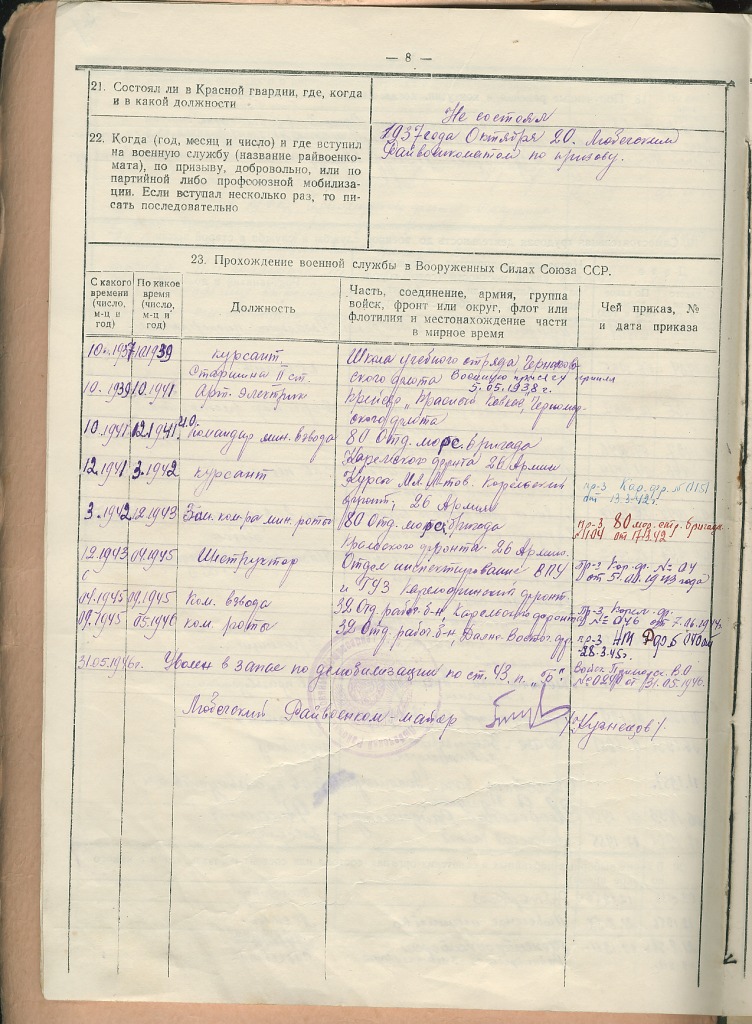 — 8 —
21. Состоял ли в Красной гвардии, где, когда
и в какой должности
Не состоял
22. Когда (год, месяц и число) и где вступил
на военную службу (название райвоенко-
мата), по призыву, добровольно, или по
партийной либо профсоюзной мобилиза-
ции. Если вступал несколько раз, то пи-
сать последовательно
1937 года Октября 20. Любегским
Райвоенкоматом по призову.
23. Прохождение военной службы в Вооруженных Силах Союза ССР.
С какого
времени
(число,
м-ц и
год)
По какое
время
(число,
м-ц и
год)
Должность
Часть, соединение, армия, группа
войск, фронт или округ, флот или
флотилия и местонахождение части
в мирное время
Чей приказ, №
и дата приказа
10.1937 10.1939 курсант, Школа учебного отряда Черномор-
Старшина II ст. ского флота Военную присягу принял
5.05.1938 г.
10.1939 10.1941 Арт. электрик Крейсер „Красный Кавказ“, Черномор-
ского флота
10.1941 12.1941 и.о. Командир мин. взвода 80 Отд. морс. бригада
Карельского фронта 26 Армии
12.1941 3.1942 курсант Курсы Мл. Л-тов. Карельский
фронт, 26 Армия
пр-з Кар. фр. № 0115
от 13.3.42 г.
3.1942 12.1943 Зам. ком-ра мин. роты 80 Отд. морс. бригада
Карельского фронта 26 Армии.
пр-з 80 мор. стр. бригады
№ 104 от 17.3.42
12.1943 04.1945 Инструктор Отдел инспектирования ВПУ
и ГУЗ Карельский фронт
пр-з Кар. ф. № 04
от 5.01.1943 года
с
04.1945 09.1945 Ком. взвода 32 Отд. работ. б-н, Карельского фронта
пр-з Карел. фр.
№ 046 от 7.06.1944г.
09.1945 05.1946 ком. роты 32 Отд. работ. б-н, Дальне-Восточ. фр.
пр-з
28.3.45г.
31.05.1946г. Уволен в запас по демобилизации по ст. 43. п. „а“.
Войск Приморск. В.О
№ 0840 от 31.05.1946.
Любегский Райвоенком-майор /Кузнецов/.